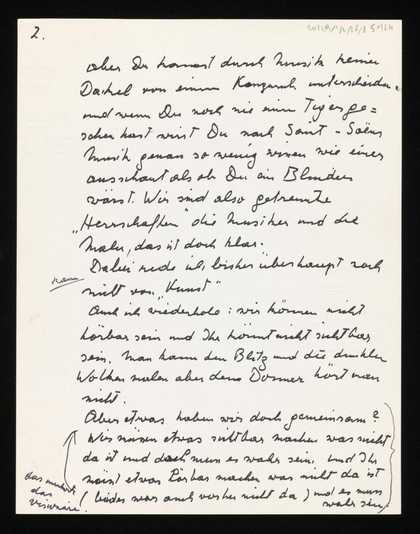 2.
aber Du kannst durch Musik keinen
Dackel von einem Känguruh unterscheiden
und wenn Du noch nie einen Tiger ge=
sehen hast wirst Du nach Saint-Saëns
Musik genau so wenig wissen wie einer
ausschaut als ob Du ein Blinder
wärst. Wir sind also getrennte
„Herrschaften" die Musiker und die
Maler, das ist doch klar.
Dabei rede ich bisher überhaupt noch
nicht von „Kunst"
Auch ich wiederhole: wir können nicht
hörbar sein und Ihr könnt nicht sichtbar
sein. Man kann den Blitz und die dunklen
Wolken malen aber den Donner hört man
nicht.
Aber etwas haben wir doch gemeinsam?
Wir müssen etwas sichtbar machen was nicht
da ist und doch muss es wahr sein. und Ihr
müsst etwas hörbar machen was nicht da ist
(beides war auch vorher nicht da) und es muss
wahr sein
das
das
Visionäre.